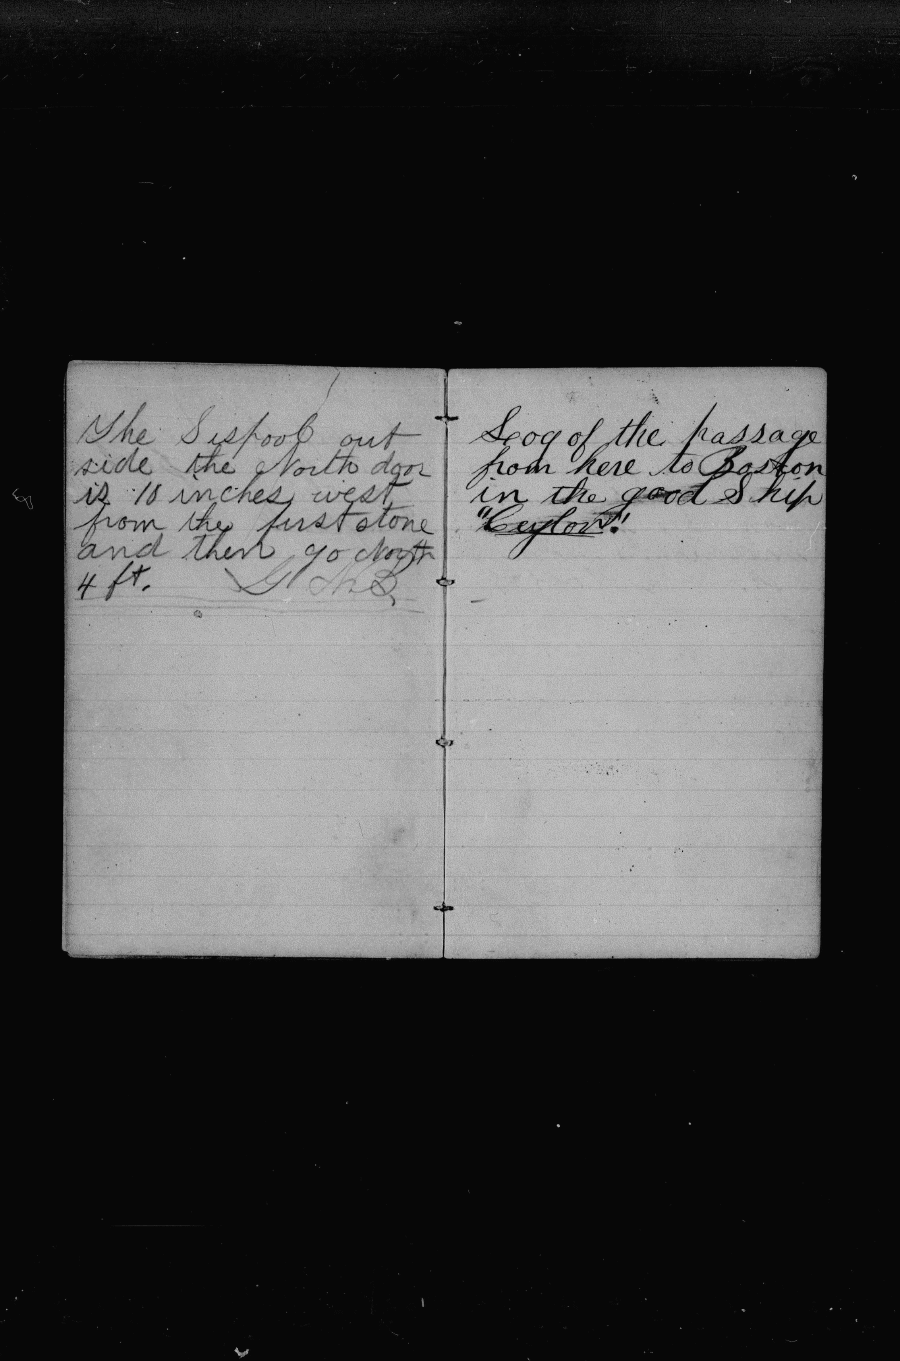 The Sispool out
side the North door
is 10 inches west
from the first stone
and then go North
4 ft.
Log of the passage
from here to Boston
in the good Ship
"Ceylon"!